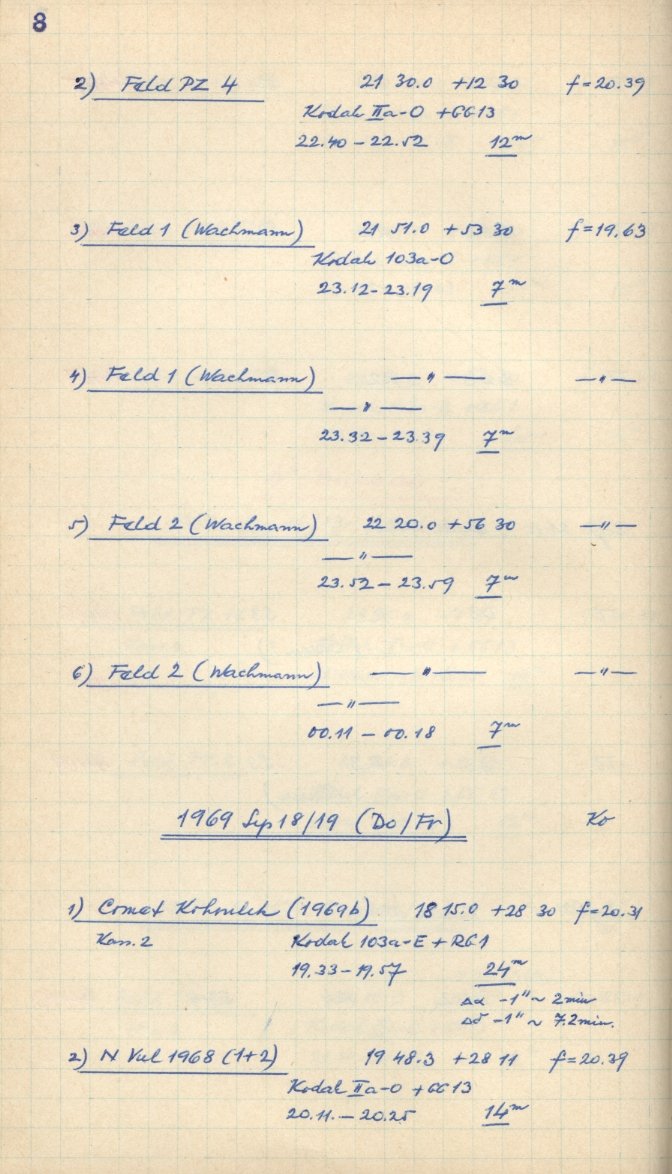 8
2) Feld PZ 4 21 30.0 +12 30 f=20.39
Kodak IIa-O +GG13
22.40 – 22.52 12ᵐ
3) Feld 1 (Wachmann) 21 51.0 +53 30 f=19.63
Kodak 103a-O
23.12 – 23.19 7ᵐ
4) Feld 1 (Wachmann) — " — — " —
— " —
23.32 – 23.39 7ᵐ
5) Feld 2 (Wachmann) 22 20.0 +56 30 — " —
— " —
23.52 – 23.59 7ᵐ
6) Feld 2 (Wachmann) — " — — " —
— " —
00.11 – 00.18 7ᵐ
1969 Sep 18/19 (Do/Fr) Ko
1) Comet Kohoutek (1969b) 18 15.0 +28 30 f=20.31
Kass. 2 Kodak 103a-E + RG1
19.33 – 19.57 24ᵐ
Δα -1" ~ 2min
Δδ -1" ~ 7.2min.
2) N Vul 1968 (1+2) 19 48.3 +28 11 f=20.39
Kodak IIa-O + GG13
20.11. – 20.25 14ᵐ